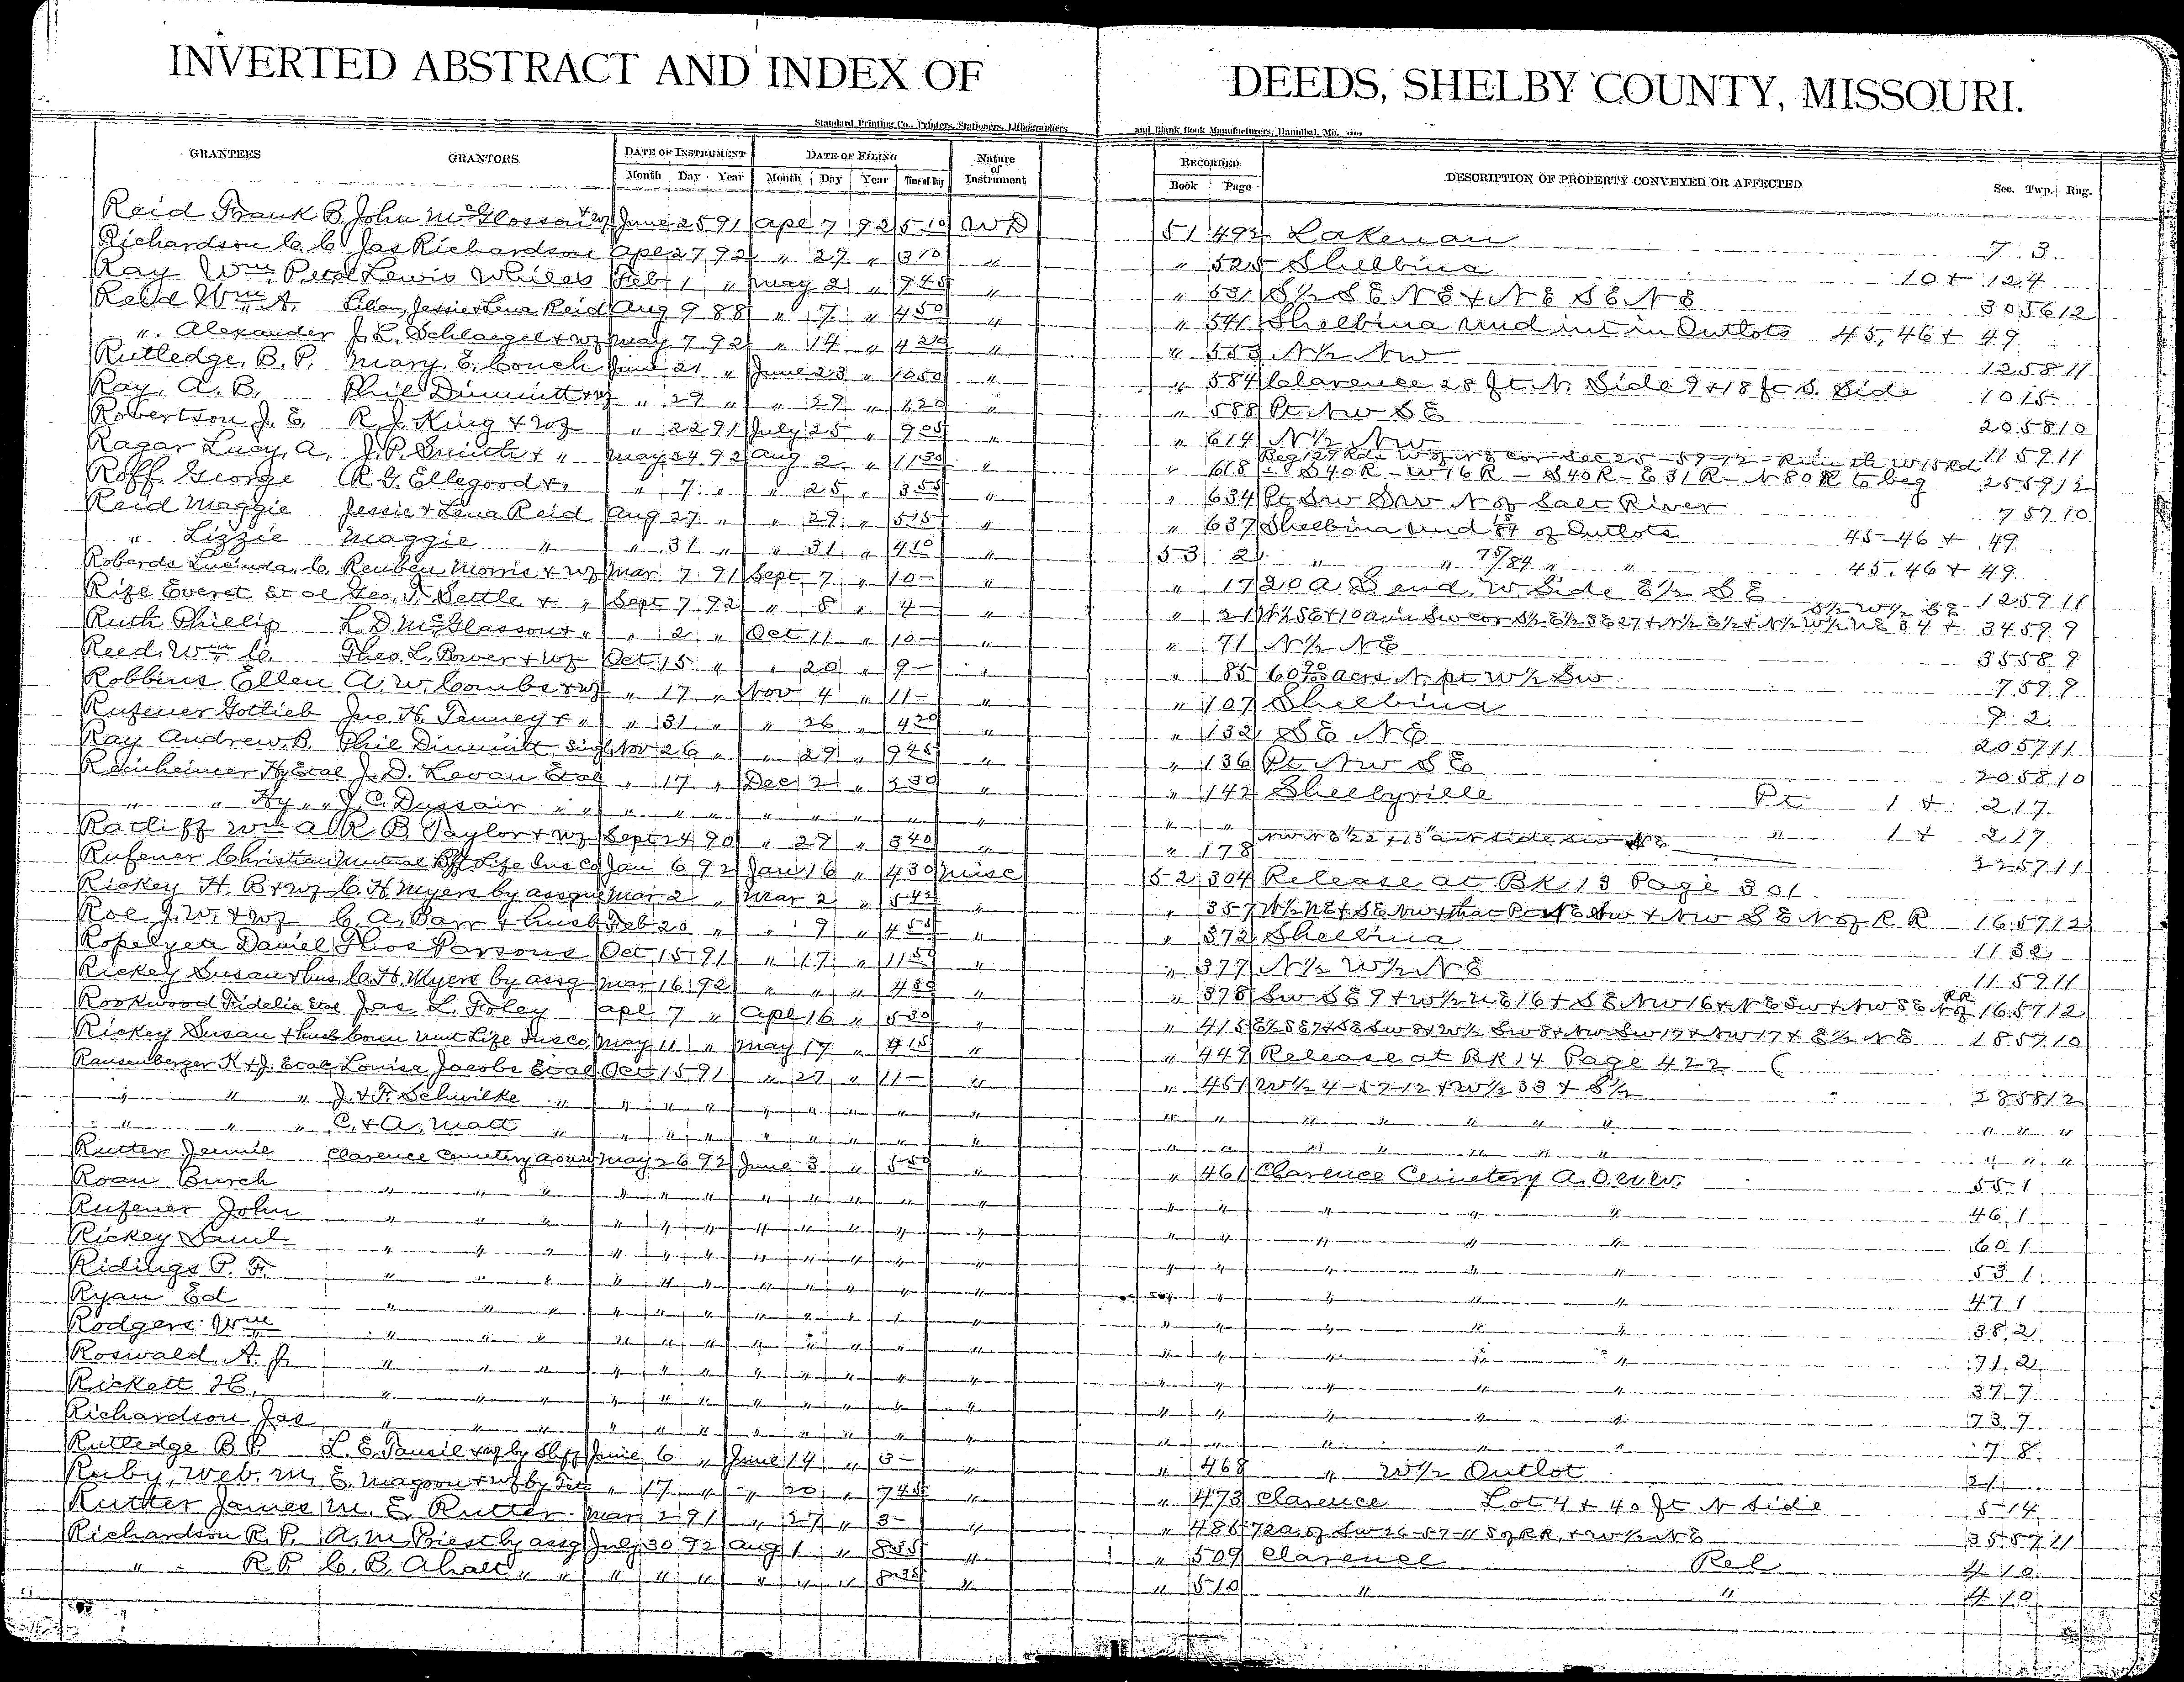 INVERTED ABSTRACT AND INDEX OF DEEDS, SHELBY COUNTY, MISSOURI.
Standard Printing Co., Printers, Stationers, Lithographers and Blank Book Manufacturers, Hannibal, Mo.
GRANTEES GRANTORS DATE OF INSTRUMENT DATE OF FILING Nature of Instrument RECORDED DESCRIPTION OF PROPERTY CONVEYED OR AFFECTED Sec. Twp. Rng.
Month Day Year Month Day Year Time of Day Book Page
Reid Frank B. John McGlasson & wf June 25 91 Apl 7 92 5 10 WD 51 492 Lakenan 7 3
Richardson C. C. Jas Richardson Apl 27 92 " 27 " 3 10 " " 525 Shelbina 10 + 12 4
Ray Wm. Peta Lewis Whiles Feb 1 " May 2 " 9 45 " " 531 S½ SE NE & NE SE NE 30 56 12
Reid Wm A. Lilian, Jessie & Lena Reid Aug 9 88 " 7 " 4 50 " " 541 Shelbina und int in Outlots 45, 46 + 49
" Alexander J. L. Schlaegel & wf May 7 92 " 14 " 4 20 " " 553 N½ NW 12 58 11
Rutledge, B. P. Mary E. Couch June 21 " June 23 " 10 50 " " 584 Clarence 28 ft N. Side 9 & 18 ft S. Side 10 15
Ray, A. B. Phil Dimmitt & wf " 29 " " 29 " 1 20 " " 588 Pt NW SE 20 58 10
Robertson J. E. R. J. King & wf " 22 91 July 25 " 9 05 " " 614 N½ NW 11 59 11
Ragar Lucy A. J. P. Smith & " May 24 92 Aug 2 " 11 30 " " 618 Beg 129 Rds W of NE cor Sec 25-59-12- Run th W 15 Rd
S 40 R - W 16 R - S 40 R - E 31 R - N 80 R to beg 25 59 12
Roff George R. G. Ellegood & " " 7 " " 25 " 3 55 " " 634 Pt SW SW N of Salt River 7 57 10
Reid Maggie Jessie & Lena Reid Aug 27 " " 29 " 5 15 " " 637 Shelbina und 15/84 of Outlots 45-46 + 49
" Lizzie Maggie " " 31 " " 31 " 4 10 " 53 2 " " 75/84 " " 45, 46 + 49
Roberds Lucinda C. Reuben Morris & wf Mar 7 91 Sept 7 " 10 - " " 17 20 A S end W. Side E½ SE 12 59 11
Rize Everet et al Geo. T. Settle & " Sept 7 92 " 8 " 4 - " " 21 W½ SE & 10 a in SW cor S½ E½ SE 27 & N½ E½ & N½ W½ NE 34 & S½ W½ SE 34 59 9
Ruth Phillip L. D. McGlasson & " " 2 " Oct 11 " 10 - " " 71 N½ NE 35 58 9
Reed Wm C. Theo. L. Power & wf Oct 15 " " 20 " 9 - " " 85 60 90/100 acres N. pt W½ SW 7 59 9
Robbins Ellen A. W. Combs & wf " 17 " Nov 4 " 11 - " " 107 Shelbina 9 2
Rufener Gotlieb Jno. H. Tenney & " " 31 " " 26 " 4 20 " " 132 SE NE 20 57 11
Ray Andrew B. Phil Dimmitt Singl Nov 26 " " 29 " 9 45 " " 136 Pt NW SE 20 58 10
Reinheimer Hy Etal J. D. Levan Etal " 17 " Dec 2 " 2 30 " " 142 Shelbyville Pt 1 + 2 17
" " Hy " " J. C. Dussair " " " " " " " " " " " " " 1 + 2 17
Ratliff Wm A R B Taylor & wf Sept 24 90 " 29 " 3 40 " " 178 22 57 11
Rufener Christian Mutual Bft Life Ins Co Jan 6 92 Jan 16 " 4 30 Misc 52 304 Release at BK 13 Page 301
Rickey H. B & wf C. H. Myers by assgne Mar 2 " Mar 2 " 5 42 " " 357 W½ NE & SE NW & that Pt NE SW & NW SE N of R R 16 57 12
Roe J. W. & wf C. A. Barr & husb Feb 20 " " 9 " 4 55 " " 372 Shelbina 11 32
Ropelyea Daniel Thos Parsons Oct 15 91 " 17 " 11 50 " " 377 N½ W½ NE 11 59 11
Rickey Susan & hus C. H. Myers by assg Mar 16 92 " " " 4 30 " " 378 SW SE 9 & W½ NE 16 & SE NW 16 & NE SW & NW SE N of RR 16 57 12
Rookwood Fidelia Etal Jas. L. Foley Apl 7 " Apl 16 " 5 30 " " 415 E½ SE 7 & SE SW 8 & W½ SW 8 & NW SW 17 & NW 17 & E½ NE 18 57 10
Rickey Susan & husb Conn Mut Life Ins Co May 11 " May 17 " 4 15 " " 449 Release at BK 14 Page 422
Ransenberger K & J. Etal Louisa Jacobs Etal Oct 15 91 " 27 " 11 - " " 451 W½ 4-57-12 & W½ 33 & S½ 28 58 12
" " " J. & F. Schwilke " " " " " " " " " " " " " " " " " " "
" " " C. & A. Matt " " " " " " " " " " " " " " " " " " "
Rutter Jennie Clarence Cemetery A O U W May 26 92 June 3 " 5 50 " " 461 Clarence Cemetery A. O. U. W. 55 1
Roan Burch " " " " " " " " " " " " " " " " 46 1
Rufener John " " " " " " " " " " " " " " " 60 1
Rickey Saml " " " " " " " " " " " " " " " 53 1
Ridings P. F. " " " " " " " " " " " " " " " 47 1
Ryan Ed " " " " " " " " " " " " " " " 38 2
Rodgers Wm " " " " " " " " " " " " " " " 71 2
Roswald A. J. " " " " " " " " " " " " " " " 37 7
Rickett H. " " " " " " " " " " " " " " " 73 7
Richardson Jas " " " " " " " " " " " " " " " 7 8
Rutledge B P. L. E. Tansil & wf by Shff June 6 " June 14 " 3 - " " 468 " W½ Outlot 21
Ruby, Web. M. E. Magoon & wf by Tste " 17 " " 20 " 7 45 " " 473 Clarence Lot 4 & 40 ft N side 5 14
Rutter James M. E. Rutter Mar 2 91 " 27 " 3 - " " 486 72 a. of SW 26-57-11 S of R.R. & W½ NE 35 57 11
Richardson R. P. A. M. Priest by assg July 30 92 Aug 1 " 8 35 " " 509 Clarence Rel 4 10
" R P. C. B. Ahalt " " " " " " " " 8 35 " " 510 " " 4 10